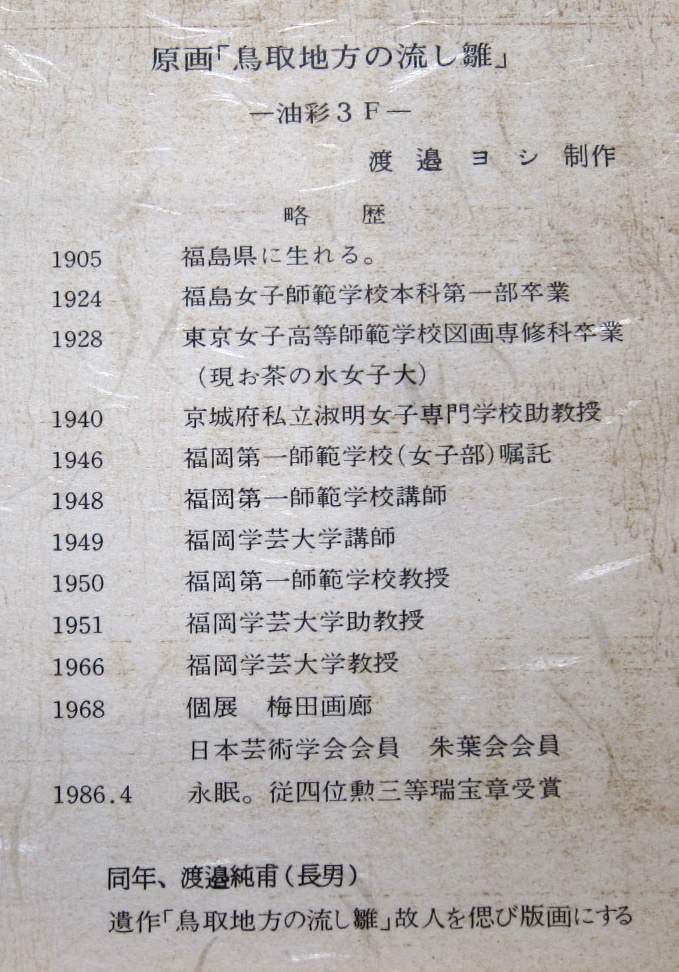 原画「鳥取地方の流し雛」
―油彩3F―
渡邉ヨシ 制作
略 歴
1905 福島県に生れる。
1924 福島女子師範学校本科第一部卒業
1928 東京女子高等師範学校図画専修科卒業
（現お茶の水女子大）
1940 京城府私立淑明女子専門学校助教授
1946 福岡第一師範学校(女子部)嘱託
1948 福岡第一師範学校講師
1949 福岡学芸大学講師
1950 福岡第一師範学校教授
1951 福岡学芸大学助教授
1966 福岡学芸大学教授
1968 個展 梅田画廊
日本芸術学会会員 朱葉会会員
1986.4 永眠。従四位勲三等瑞宝章受賞
同年、渡邉純甫(長男)
遺作「鳥取地方の流し雛」故人を偲び版画にする